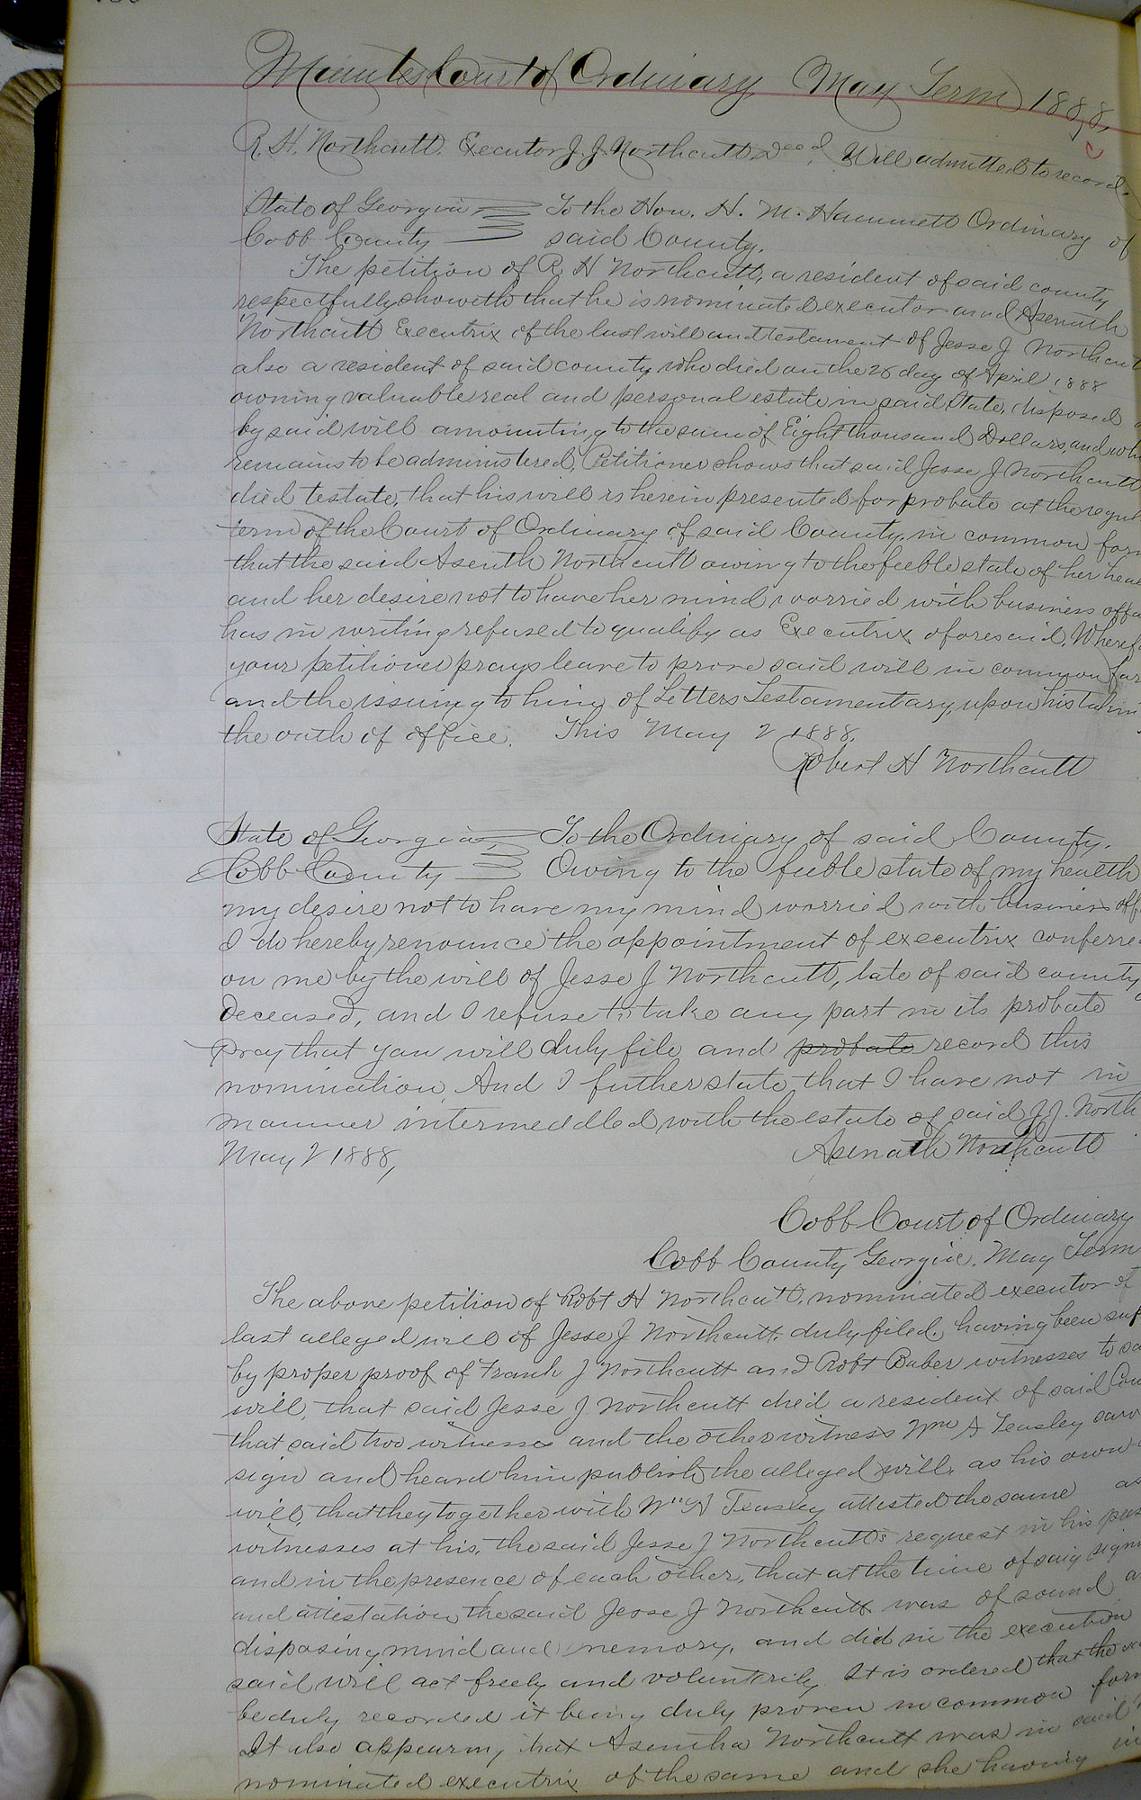 Minutes Court of Ordinary May Term 1888,
R. H. Northcutt Executor J. J. Northcutt Decd. Will admitted to record.
State of Georgia To the Hon. H. M. Hammett Ordinary of
Cobb County said County.
The petition of R H Northcutt, a resident of said county
respectfully showeth that he is nominated executor and Asenath
Northcutt Executrix of the last will and testament of Jesse J Northcutt
also a resident of said county who died on the 26 day of April 1888
owning valuable real and personal estate in said State, disposed
by said will amounting to the sum of Eight thousand Dollars, and wh
remains to be administered, Petitioner shows that said Jesse J Northcutt
died testate, that his will is herein presented for probate at the regul
term of the Court of Ordinary of said County, in common for
that the said Asenth Northcutt owing to the feeble state of her hea
and her desire not to have her mind worried with business affa
has in writing refused to qualify as Executrix aforesaid. Wheref
your petitioner prays leave to prove said will in common for
and the issuing to him of Letters Testamentary, upon his takin
the oath of office. This May 2 1888.
Robert H Northcutt
State of Georgia, To the Ordinary of said County.
Cobb County Owing to the feeble state of my health
my desire not to have my mind worried with business aff
I do hereby renounce the appointment of executrix conferre
on me by the will of Jesse J Northcutt, late of said county
deceased, and I refuse to take any part in its probate
Pray that you will duly file and probate record this
nomination. And I futher state that I have not in
manner intermeddled with the estate of said J J. North
May 2 1888, Asenath Northcutt
Cobb Court of Ordinary
Cobb County Georgia. May Term
The above petition of Robt H Northcutt, nominated executor of
last alleged will of Jesse J Northcutt, duly filed, having been sup
by proper proof of Frank J Northcutt and Robt Baber witnesses to sa
will, that said Jesse J Northcutt died a resident of said Cou
that said two witnesses and the other witness Wm A Teasley saw
sign and heard him publish the alleged will, as his own
will, that they together with Wm A Teasley attested the same as
witnesses at his, the said Jesse J Northcutt's request in his pres
and in the presence of each other, that at the time of said signi
and attestation the said Jesse J Northcutt was of sound a
disposing mind and memory, and did in the execution
said will act freely and voluntrily. It is ordered that the
be duly recorded it being duly proven in common form
It also appearing that Asentha Northcutt was in said
nominated executrix of the same and she having in